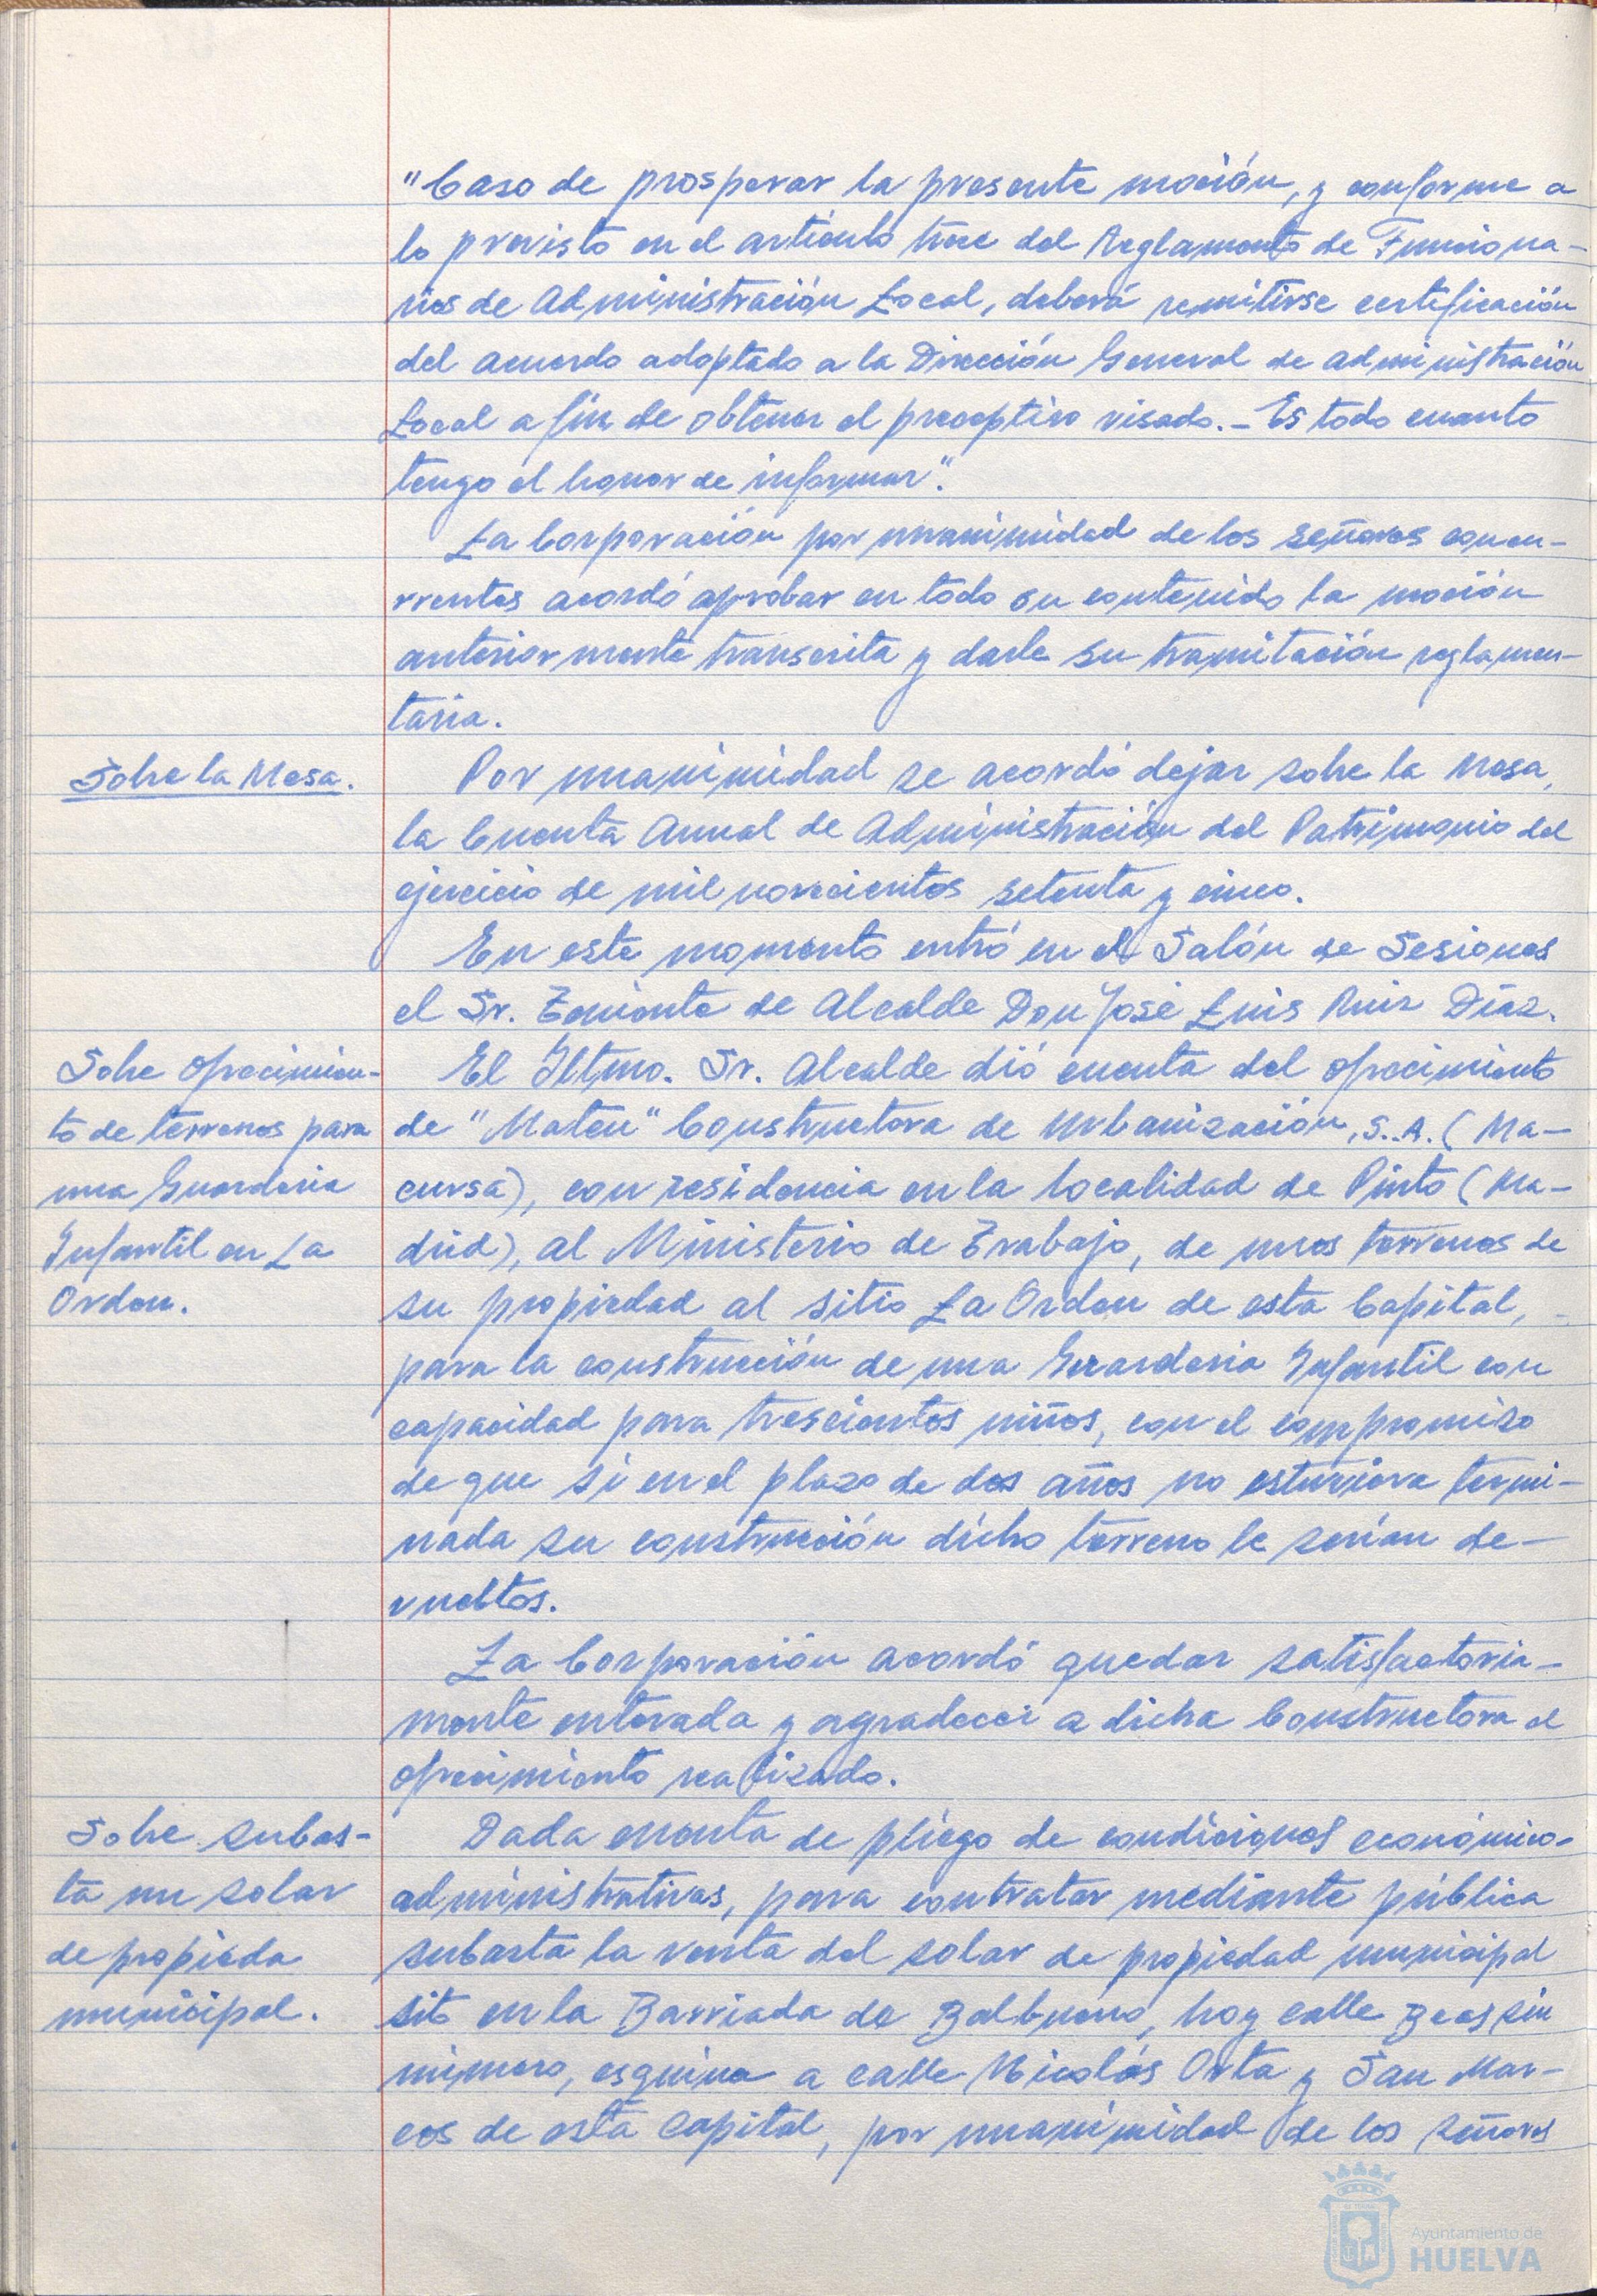 "Caso de prosperar la presente moción, y conforme a
lo previsto en el artículo trece del Reglamento de Funciona-
rios de Administración Local, deberá remitirse certificación
del acuerdo adoptado a la Dirección General de Administración
Local a fin de obtener el preceptivo visado.- Es todo cuanto
tengo el honor de informar".
La Corporación por unanimidad de los señores concu-
rrentes acordó aprobar en todo su contenido la moción
anteriormente transcrita y darle su tramitación reglamen-
taria.
Sobre la Mesa.
Por unanimidad se acordó dejar sobre la Mesa,
la Cuenta Anual de Administración del Patrimonio del
ejercicio de mil novecientos setenta y cinco.
En este momento entró en el Salón de Sesiones
el Sr. Teniente de Alcalde Don José Luis Ruiz Díaz.
Sobre ofrecimien-
to de terrenos para
una Guarderia
Infantil en La
Orden.
El Iltmo. Sr. Alcalde dió cuenta del ofrecimiento
de "Mateu" Constructora de Urbanización, S.A. (Ma-
cursa), con residencia en la localidad de Pinto (Ma-
drid), al Ministerio de Trabajo, de unos terrenos de
su propiedad al sitio La Orden de esta Capital,
para la construcción de una Guarderia Infantil con
capacidad para trescientos niños, con el compromiso
de que si en el plazo de dos años no estuviera termi-
nada su construcción dicho terreno le serían de-
vueltos.
La Corporación acordó quedar satisfactoria-
mente enterada y agradecer a dicha Constructora el
ofrecimiento realizado.
Sobre subas-
ta un solar
de propieda
municipal.
Dada cuenta de pliego de condiciones económico-
administrativas, para contratar mediante pública
subasta la venta del solar de propiedad municipal
sito en la Barriada de Balbueno, hoy calle Beas sin
número, esquina a calle Nicolás Orta y San Mar-
cos de esta Capital, por unanimidad de los señores
Ayuntamiento de
HUELVA